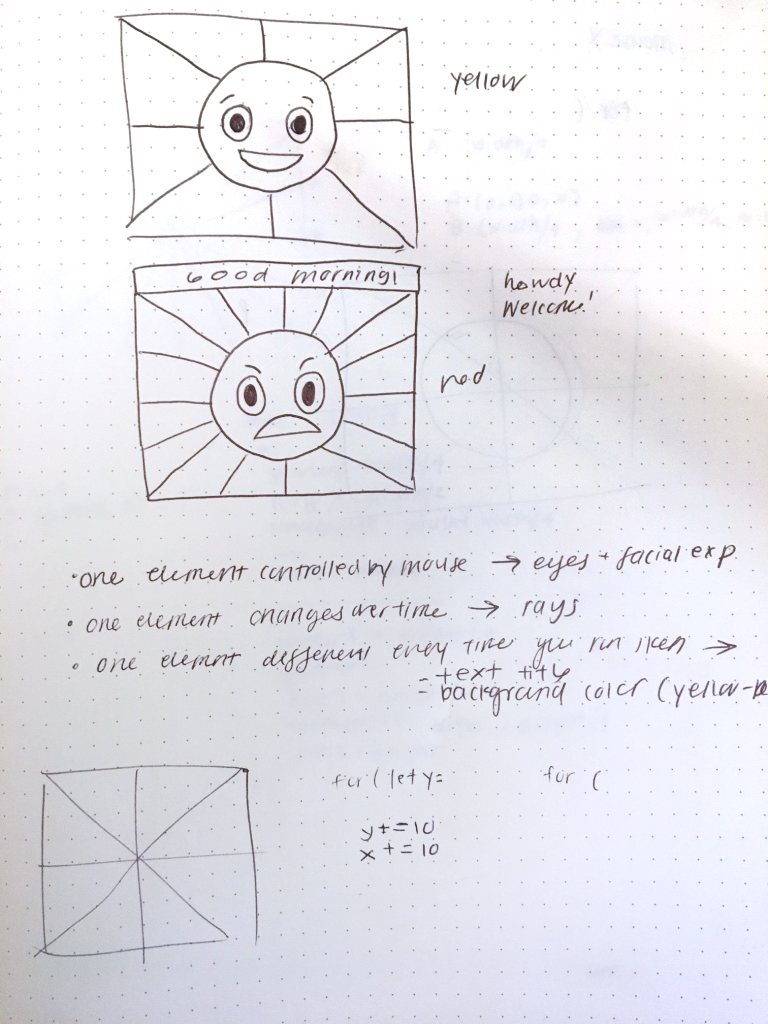 yellow
Good morning!
howdy
Welcome!
red
• one element controlled by mouse → eyes + facial exp
• one element changes over time → rays
• one element different every time you run →
- text title
- background color (yellow-
for ( let y=
for (
y+=10
x+=10